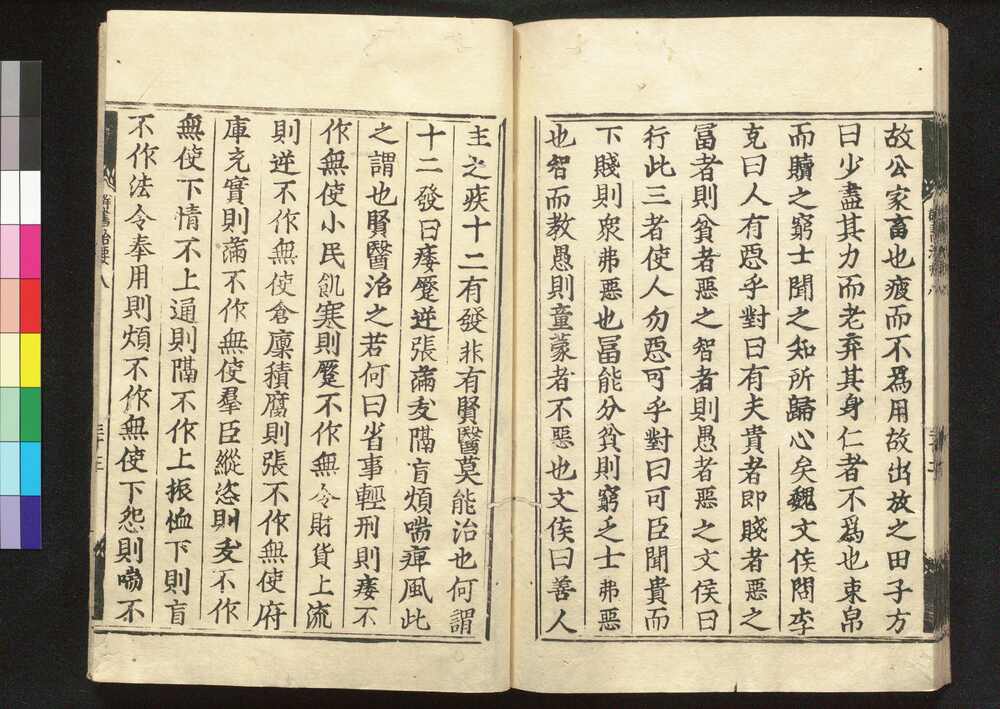 故公家畜也疲而不爲用故出放之田子方
曰少盡其力而老弃其身仁者不爲也束帛
而贖之窮士聞之知所歸心矣魏文侯問李
克曰人有惡乎對曰有夫貴者即賤者惡之
冨者則貧者惡之智者則愚者惡之文侯曰
行此三者使人勿惡可乎對曰可臣聞貴而
下賤則衆弗惡也冨能分貧則窮乏士弗惡
也智而教愚則童蒙者不惡也文侯曰善人
主之疾十二有發非有賢醫莫能治也何謂
十二發曰痿蹷逆張滿支隔盲煩喘痺風此
之謂也賢醫治之若何曰省事輕刑則痿不
作無使小民飢寒則蹷不作無令財貨上流
則逆不作無使倉廩積腐則張不作無使府
庫充實則滿不作無使羣臣縱恣則支不作
無使下情不上通則隔不作上振恤下則盲
不作法令奉用則煩不作無使下怨則喘不
八
三十三